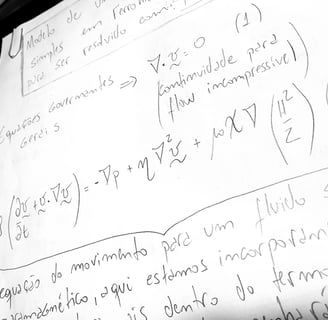 Modelo de um
simples em ferro
para ser resolvido como
Equações Governantes ⇒ ∇·v = 0 (1)
Gerais
(continuidade para
flow incompressive)
(∂v/∂t + v·∇v) = -∇p + η∇²v + μ₀χ∇(H²/2)
equação do movimento para um fluido
aqui estamos incorporan
dentro do termo